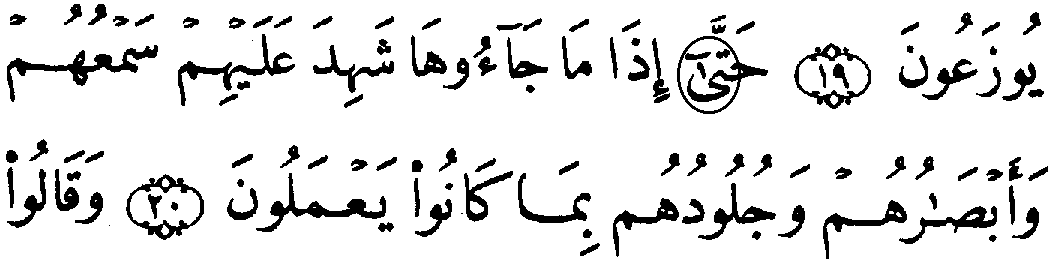 يُوزَعُونَ ١٩ حَتَّىٰٓ إِذَا مَا جَآءُوهَا شَهِدَ عَلَيْهِمْ سَمْعُهُمْ
وَأَبْصَـٰرُهُمْ وَجُلُودُهُم بِمَا كَانُوا۟ يَعْمَلُونَ ٢٠ وَقَالُوا۟